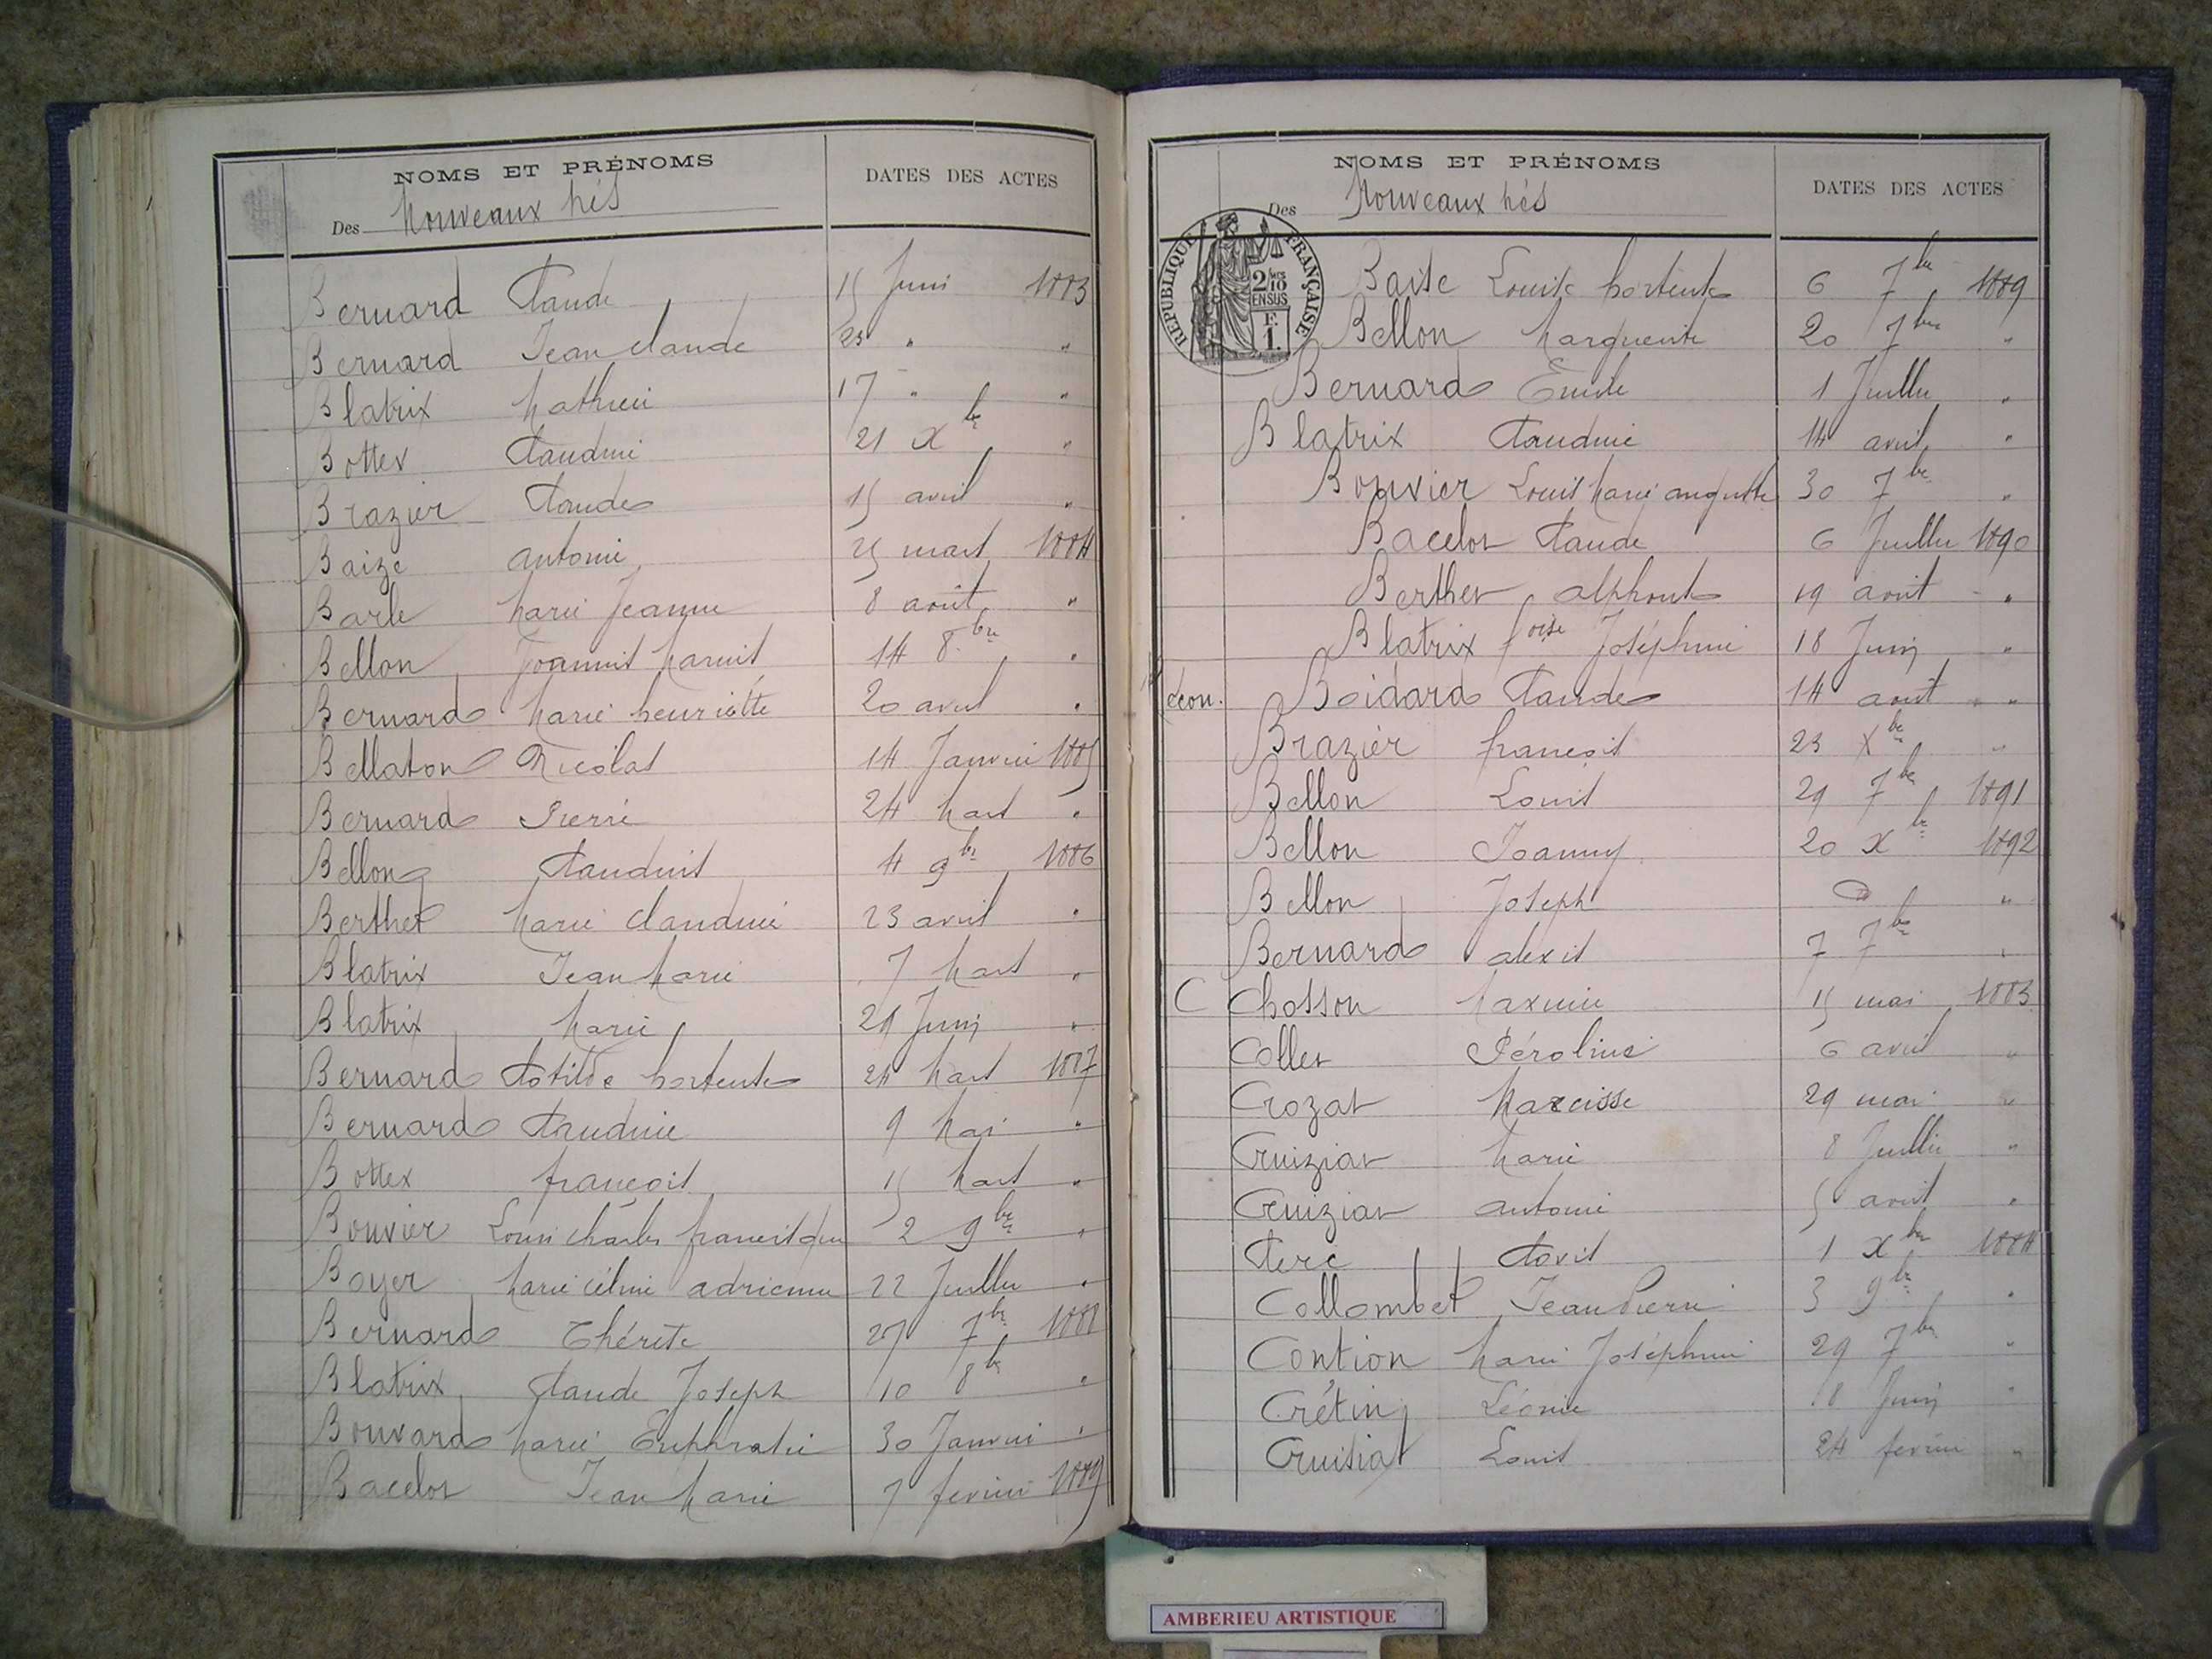 NOMS ET PRÉNOMS DATES DES ACTES
Des Nouveaux nés
Bernard Claude 15 Juin 1883
Bernard Jean Claude 23 " "
Blatrix Mathieu 17 " "
Bottex Claudine 21 Xbre "
Brazier Claude 15 avril "
Baize antoine 25 mars 1884
Barle Marie Jeanne 8 août "
Bellon Joannès Marius 14 8bre "
Bernard Marie henriette 20 avril "
Bellaton Nicolas 14 Janvier 1885
Bernard Pierre 24 Mars "
Bellon Claudius 4 9bre 1886
Berthet Marie Claudine 23 avril "
Blatrix Jean Marie 7 Mars "
Blatrix Marie 21 Juin "
Bernard Clotilde hortense 24 Mars 1887
Bernard Claudine 9 Mai "
Bottex françois 15 Mars "
Bouvier Louis Charles francisque 2 9bre "
Boyer Marie Céline adrienne 22 Juillet "
Bernard Thérèse 27 7bre 1888
Blatrix Claude Joseph 10 8bre "
Bouvard Marie Euphrasie 30 Janvier "
Bacelot Jean Marie 7 fevrier 1889
NOMS ET PRÉNOMS DATES DES ACTES
Des Nouveaux nés
RÉPUBLIQUE FRANÇAISE
2/10 EN SUS
F. 1.
Baise Louise hortense 6 7bre 1889
Bellon Marguerite 20 7bre "
Bernard Emile 1 Juillet "
Blatrix Claudine 14 avril "
Bouvier Louis Marie auguste 30 7bre "
Bacelot Claude 6 Juillet 1890
Berthet alphonse 19 août "
Blatrix foise Joséphine 18 Juin "
Boidard Claude 14 août "
Brazier françois 23 Xbre "
Bellon Louis 29 7bre 1891
Bellon Joanny 20 Xbre 1892
Bellon Joseph "
Bernard alexis 7 7bre "
C Chosson Maximin 15 mai 1883
Collet Péroline 6 avril "
Crozat Narcisse 29 mai "
Cruiziat Marie 8 Juillet "
Cruiziat antoine 5 août "
Clerc Clovis 1 Xbre 1884
Collombet Jean Pierre 3 9bre "
Contion Marie Joséphine 29 7bre "
Crétin Léonie 8 Juin "
Cruisiat Louis 24 fevrier "
AMBERIEU ARTISTIQUE